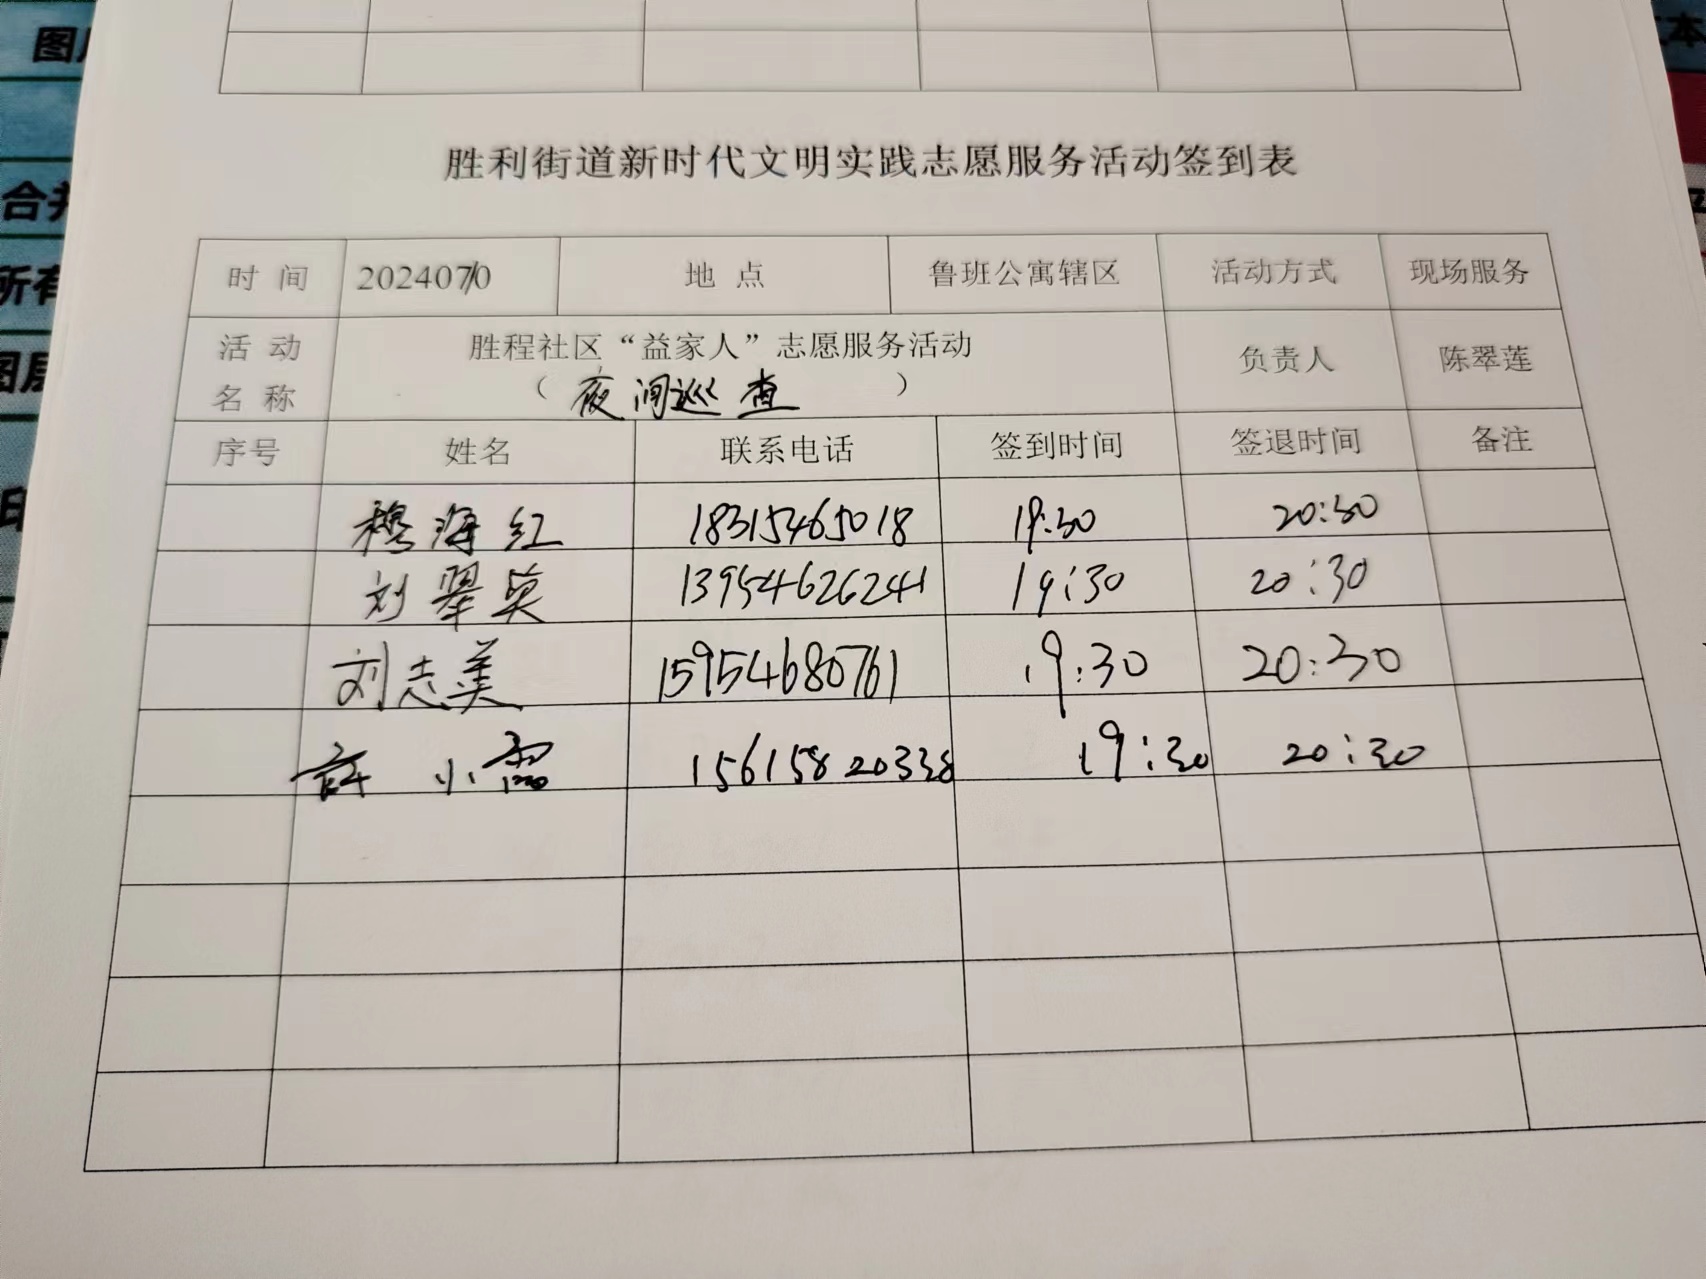 图
合并
所有
图层
印
本
胜利街道新时代文明实践志愿服务活动签到表
时 间 20240710 地 点 鲁班公寓辖区 活动方式 现场服务
活 动 名 称 胜程社区“益家人”志愿服务活动 负责人 陈翠莲
（夜间巡查）
序号 姓名 联系电话 签到时间 签退时间 备注
穆海红 18315465018 19:30 20:30
刘翠英 13954626241 19:30 20:30
刘志美 15954680761 19:30 20:30
许小霞 15615820338 19:30 20:30